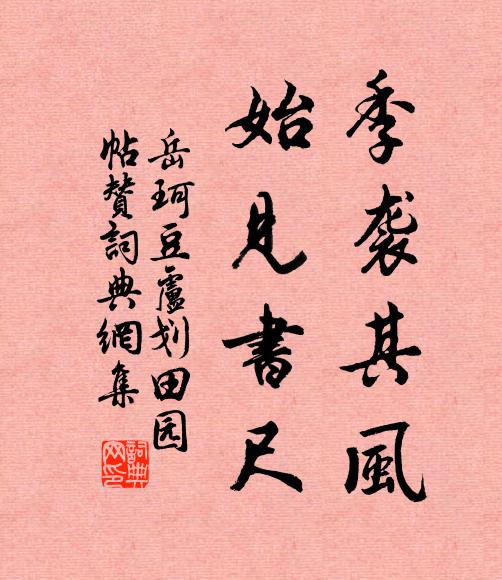 季袭其風
始見書尺
岳珂豆盧划田园
帖赞詞典網集
詞典网印